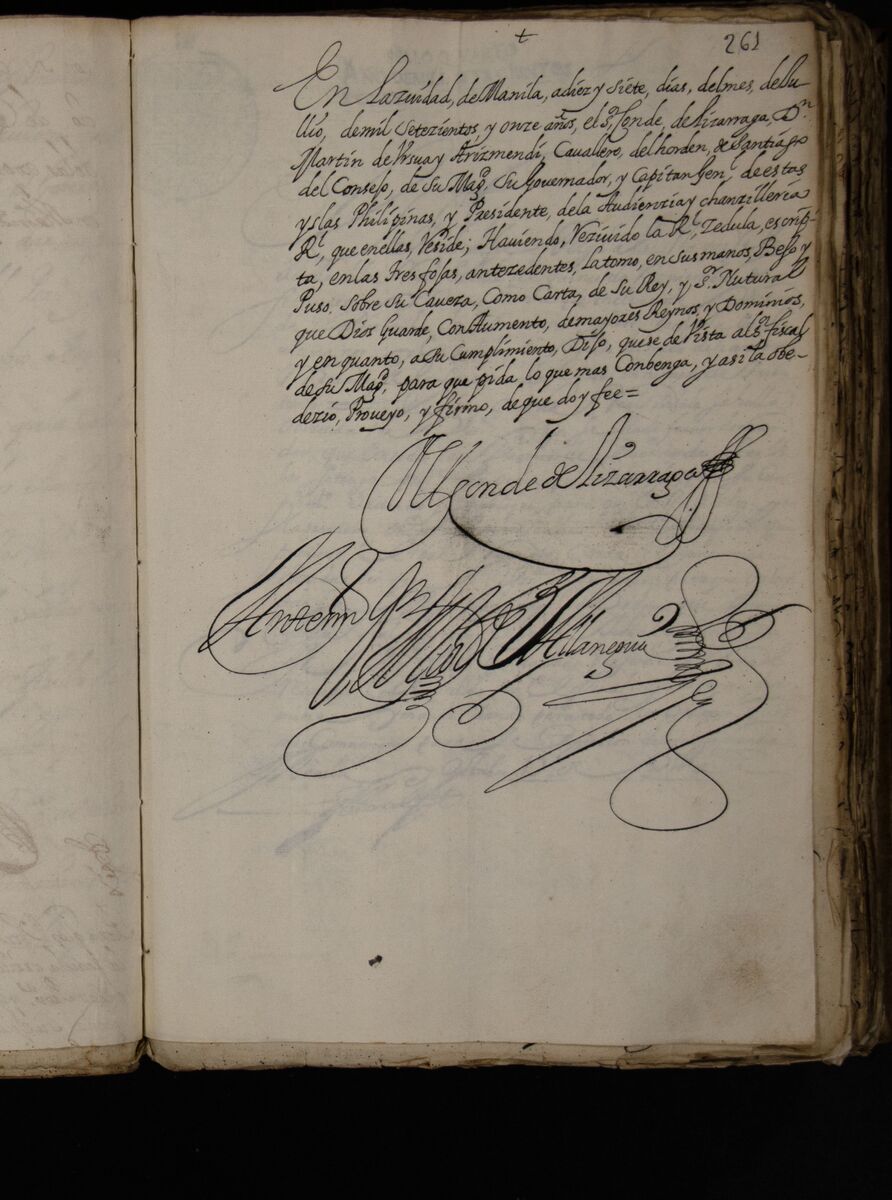 261
En la ziudad, de Manila, a diez y siete, dias, del mes, de Ju-
llio, de mil setezientos, y onze años, el sr. Conde, de Lizarraga, Dn.
Martin de Vrsua y Arizmendi, Cavallero, del horden, de Santiago
del Consejo, de Su Magd. Su Governador, y Capitan Genl. de estas
yslas Philipinas, y Presidente, de la Audienzia y chanzilleria
Rl. que en ellas, Reside; Haviendo, Rezivido la Rl. Zedula, escrip-
ta, en las tres fojas, antezedentes, la tomo, en sus manos, Beso y
Puso. Sobre su Caveza, Como Carta, de Su Rey, y Sr. Natural
que Dios Guarde, Con Aumento, de mayores Reynos, y Dominios,
y en quanto, a su Cumplimiento, Dijo, que se de Vista al sr. fiscal
de su Magd. para que pida lo que mas Conbenga, y asi la obe-
dezio, Proveyo, y firmo, de que doy fee=
El Conde de Lizarraga
Antonio